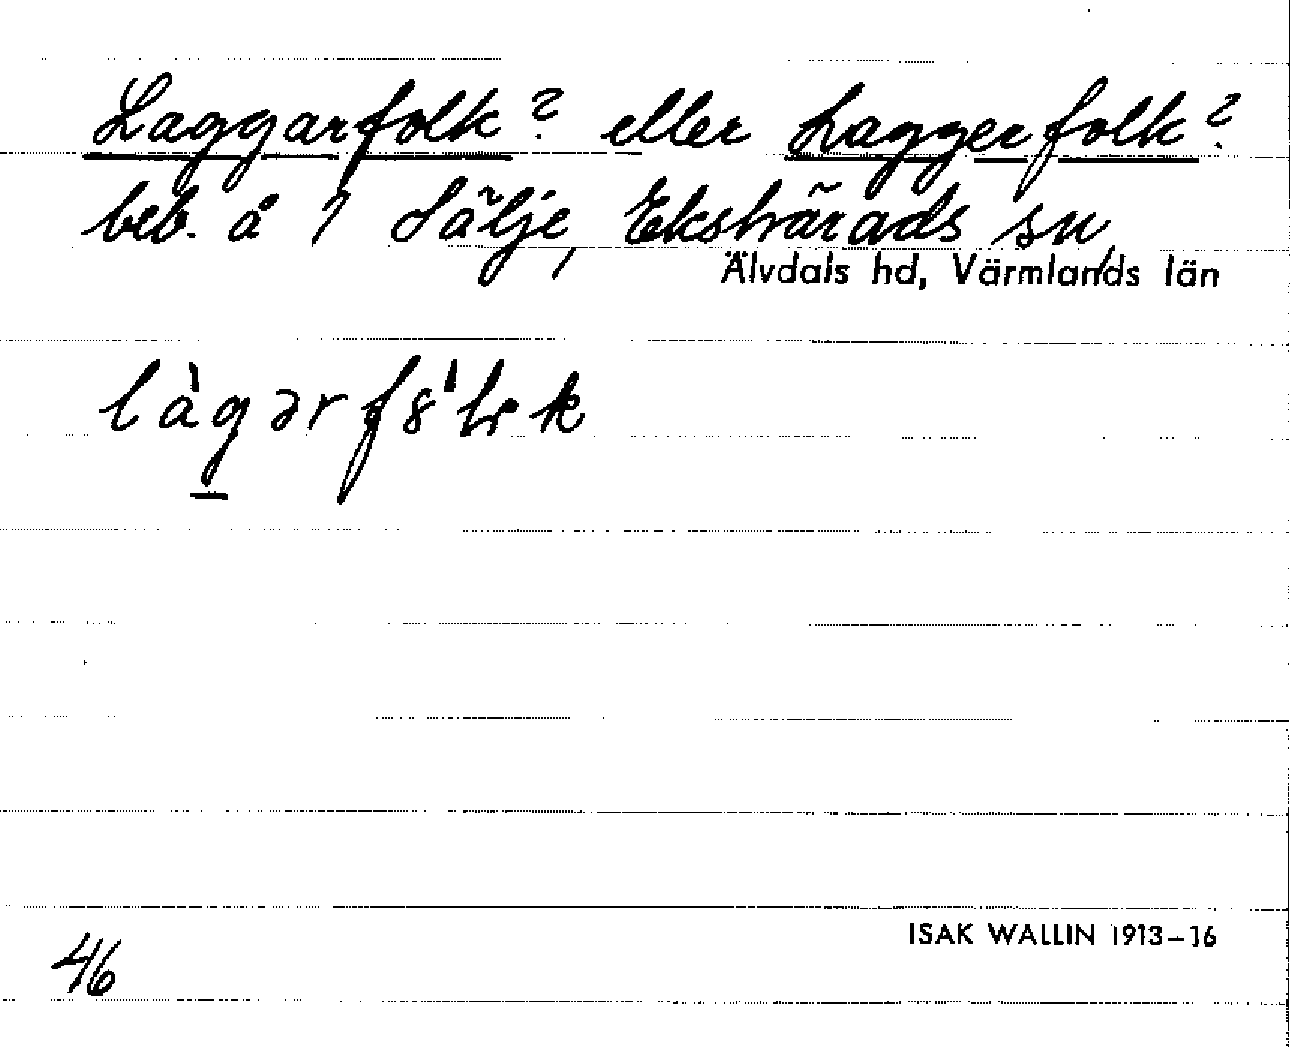 Laggarfolk? eller Laggerfolk?
beb. å 1 Sälje, Ekshärads sn,
Älvdals hd, Värmlands län
là̱gərf8ˈɫk
46
ISAK WALLIN 1913–16